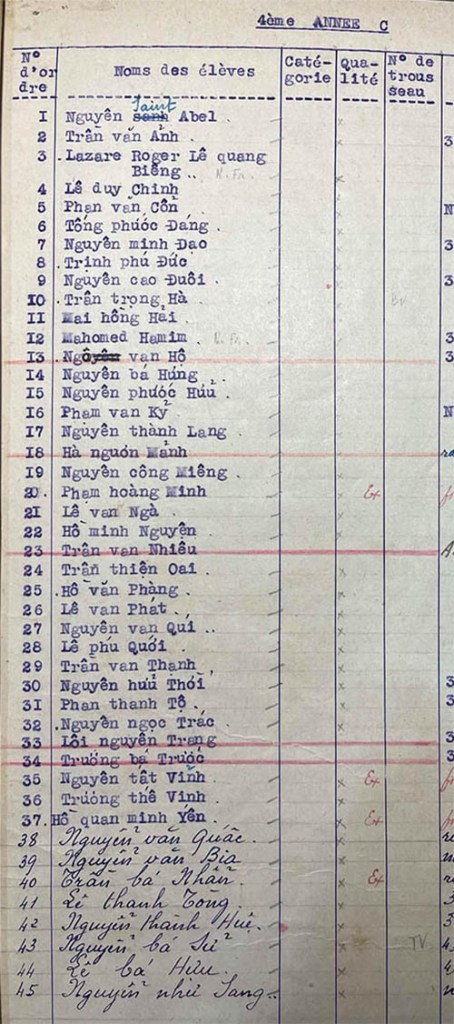 4ème ANNEE C
N° d'or dre Noms des élèves Caté- gorie Qua- lité N° de trous seau
1 Nguyên Saint Abel .
2 Trần văn Ảnh .
3 . Lazare Roger Lê quang
Biêng .. N. Fr.
4 Lê duy Chinh
5 Phan văn Cồn .
6 Tống phước Đáng .
7 Nguyên minh Đao
8 . Trinh phú Đức .
9 Nguyên cao Đuôi .
10 . Trân trọng Hà . Bv
11 Mai hông Hải .
12 Mahomed Hamim . N. Fr.
13 . Ngô van Hô
14 Nguyên bá Hùng .
15 Nguyên phước Hưu .
16 Pham van Kỷ
17 Nguyên thành Lang .
18 Hà ngươn Mảnh
19 Nguyên công Miêng .
20 . Pham hoàng Minh Ex
21 Lê van Ngà .
22 Hồ minh Nguyên .
23 Trân van Nhiều
24 Trần thiện Oai .
25 . Hồ văn Phàng .
26 Lê van Phát . .
27 Nguyên van Qui ..
28 Lê phu Quới .
29 Trần van Thanh .
30 Nguyên hưu Thới
31 Phan thanh Tô .
32 . Nguyên ngọc Trác .
33 Lôi nguyên Trang
34 Trương bá Trước
35 Nguyên tất Vinh . Ex
36 Trương thê Vinh .
37. Hồ quan minh Yên . Ex
38 Nguyễn văn Quắc .
39 Nguyễn văn Bia
40 Trần bá Nhẫn . Ex
41 Lê thanh Tòng .
42 . Nguyễn thành Huê .
43 Nguyễn bá Sử TV
44 Lê bá Hưu .
45 Nguyễn như Sang ..